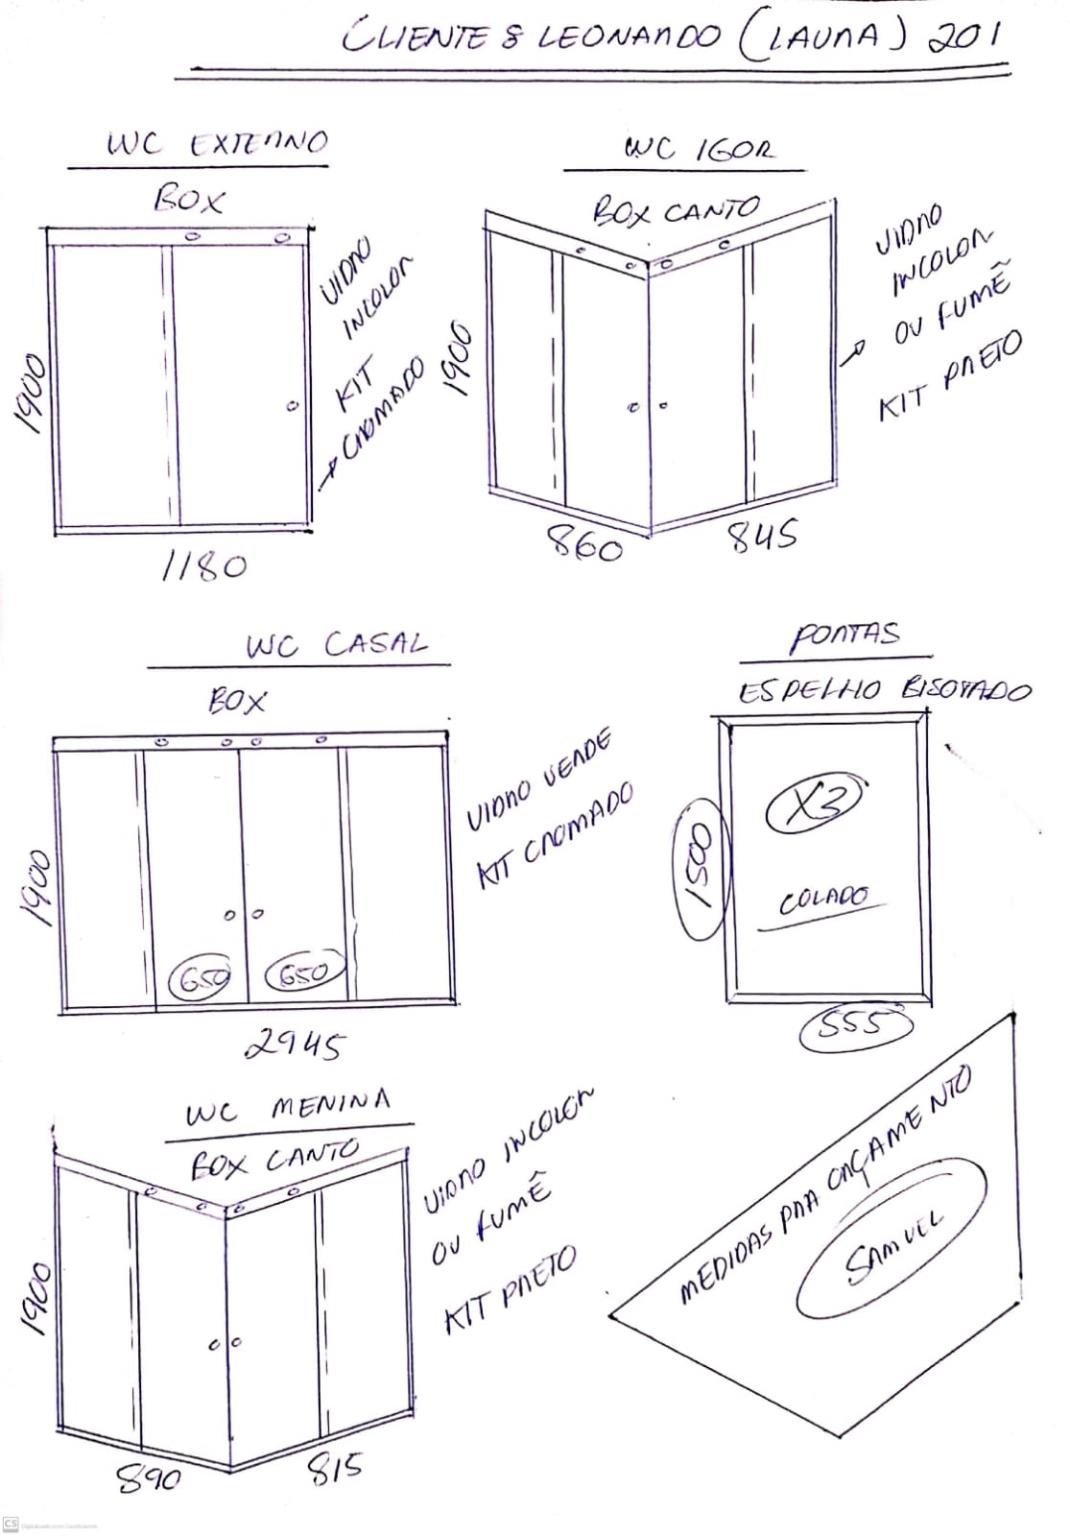 CLIENTE: LEONARDO (LAURA) 201
WC EXTERNO
BOX
1900
1180
VIDRO
INCOLOR
KIT
CROMADO
WC IGOR
BOX CANTO
1900
860
845
VIDRO
INCOLOR
OU FUMÊ
KIT PRETO
WC CASAL
BOX
1900
650
650
2945
VIDRO VERDE
KIT CROMADO
PORTAS
ESPELHO BISOTADO
X3
COLADO
1500
555
WC MENINA
BOX CANTO
1900
890
815
VIDRO INCOLOR
OU FUMÊ
KIT PRETO
MEDIDAS PARA ORÇAMENTO
SAMUEL
CS